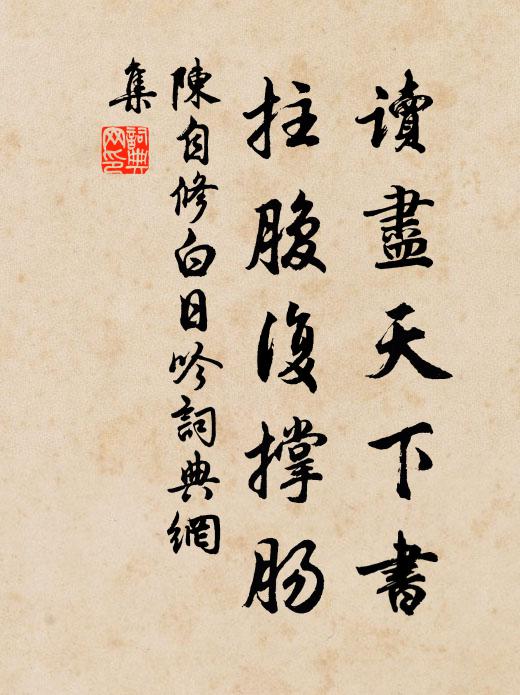 讀盡天下書
拄腹復撐腸
陳自修白日吟詞典網
集
詞典网印